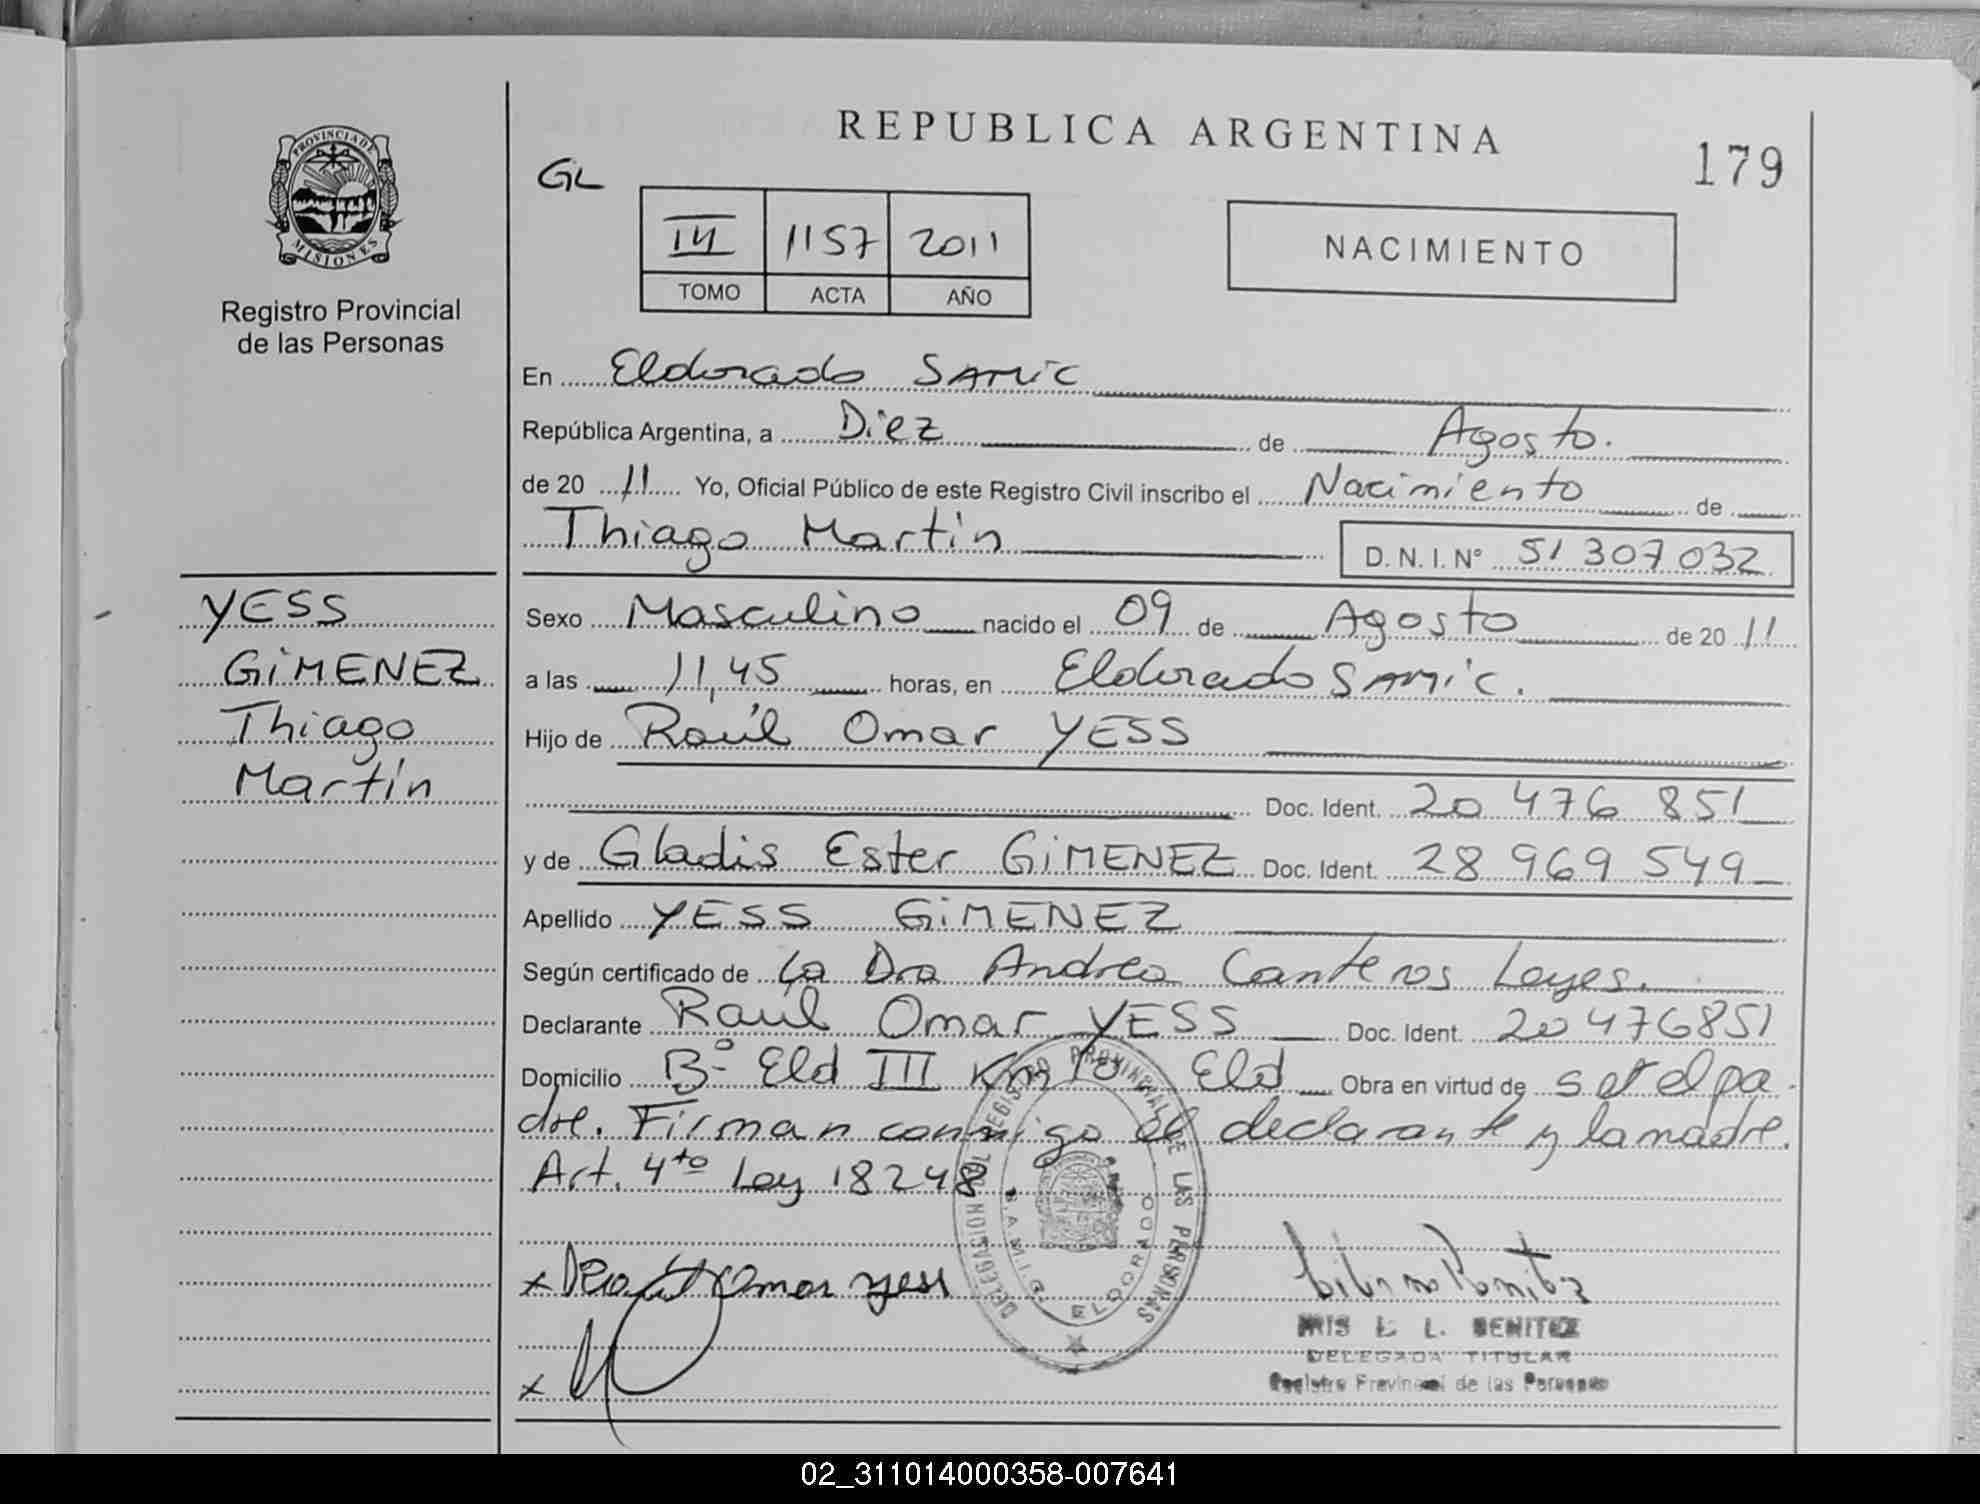 REPUBLICA ARGENTINA
179
GL
PROVINCIA DE
MISIONES
Registro Provincial
de las Personas
III 1157 2011
TOMO ACTA AÑO
NACIMIENTO
En Eldorado SAMiC
República Argentina, a Diez de Agosto.
de 20 11 Yo, Oficial Público de este Registro Civil inscribo el Nacimiento de
Thiago Martin D.N.I.N° 51 307 032
YESS
GiMENEZ
Thiago
Martín
Sexo Masculino nacido el 09 de Agosto de 20 11
a las 11,45 horas, en Eldorado SAMiC.
Hijo de Raúl Omar YESS
Doc. Ident. 20 476 851
y de Gladis Ester GiMENEZ Doc. Ident. 28 969 549
Apellido YESS GiMENEZ
Según certificado de La Dra Andrea Canteros Leyes.
Declarante Raúl Omar YESS Doc. Ident. 20476851
Domicilio B° Eld III Km 10 Eld Obra en virtud de ser el pa
dre. Firman conmigo el declarante y la madre.
Art. 4to Ley 18248.
DELEGACION DEL REGISTRO PROVINCIAL DE LAS PERSONAS
S.A.M.I.C. ELDORADO
x Raúl Omar Yess
x
IRIS L. L. BENITEZ
DELEGADA TITULAR
Registro Provincial de las Personas
02_311014000358-007641